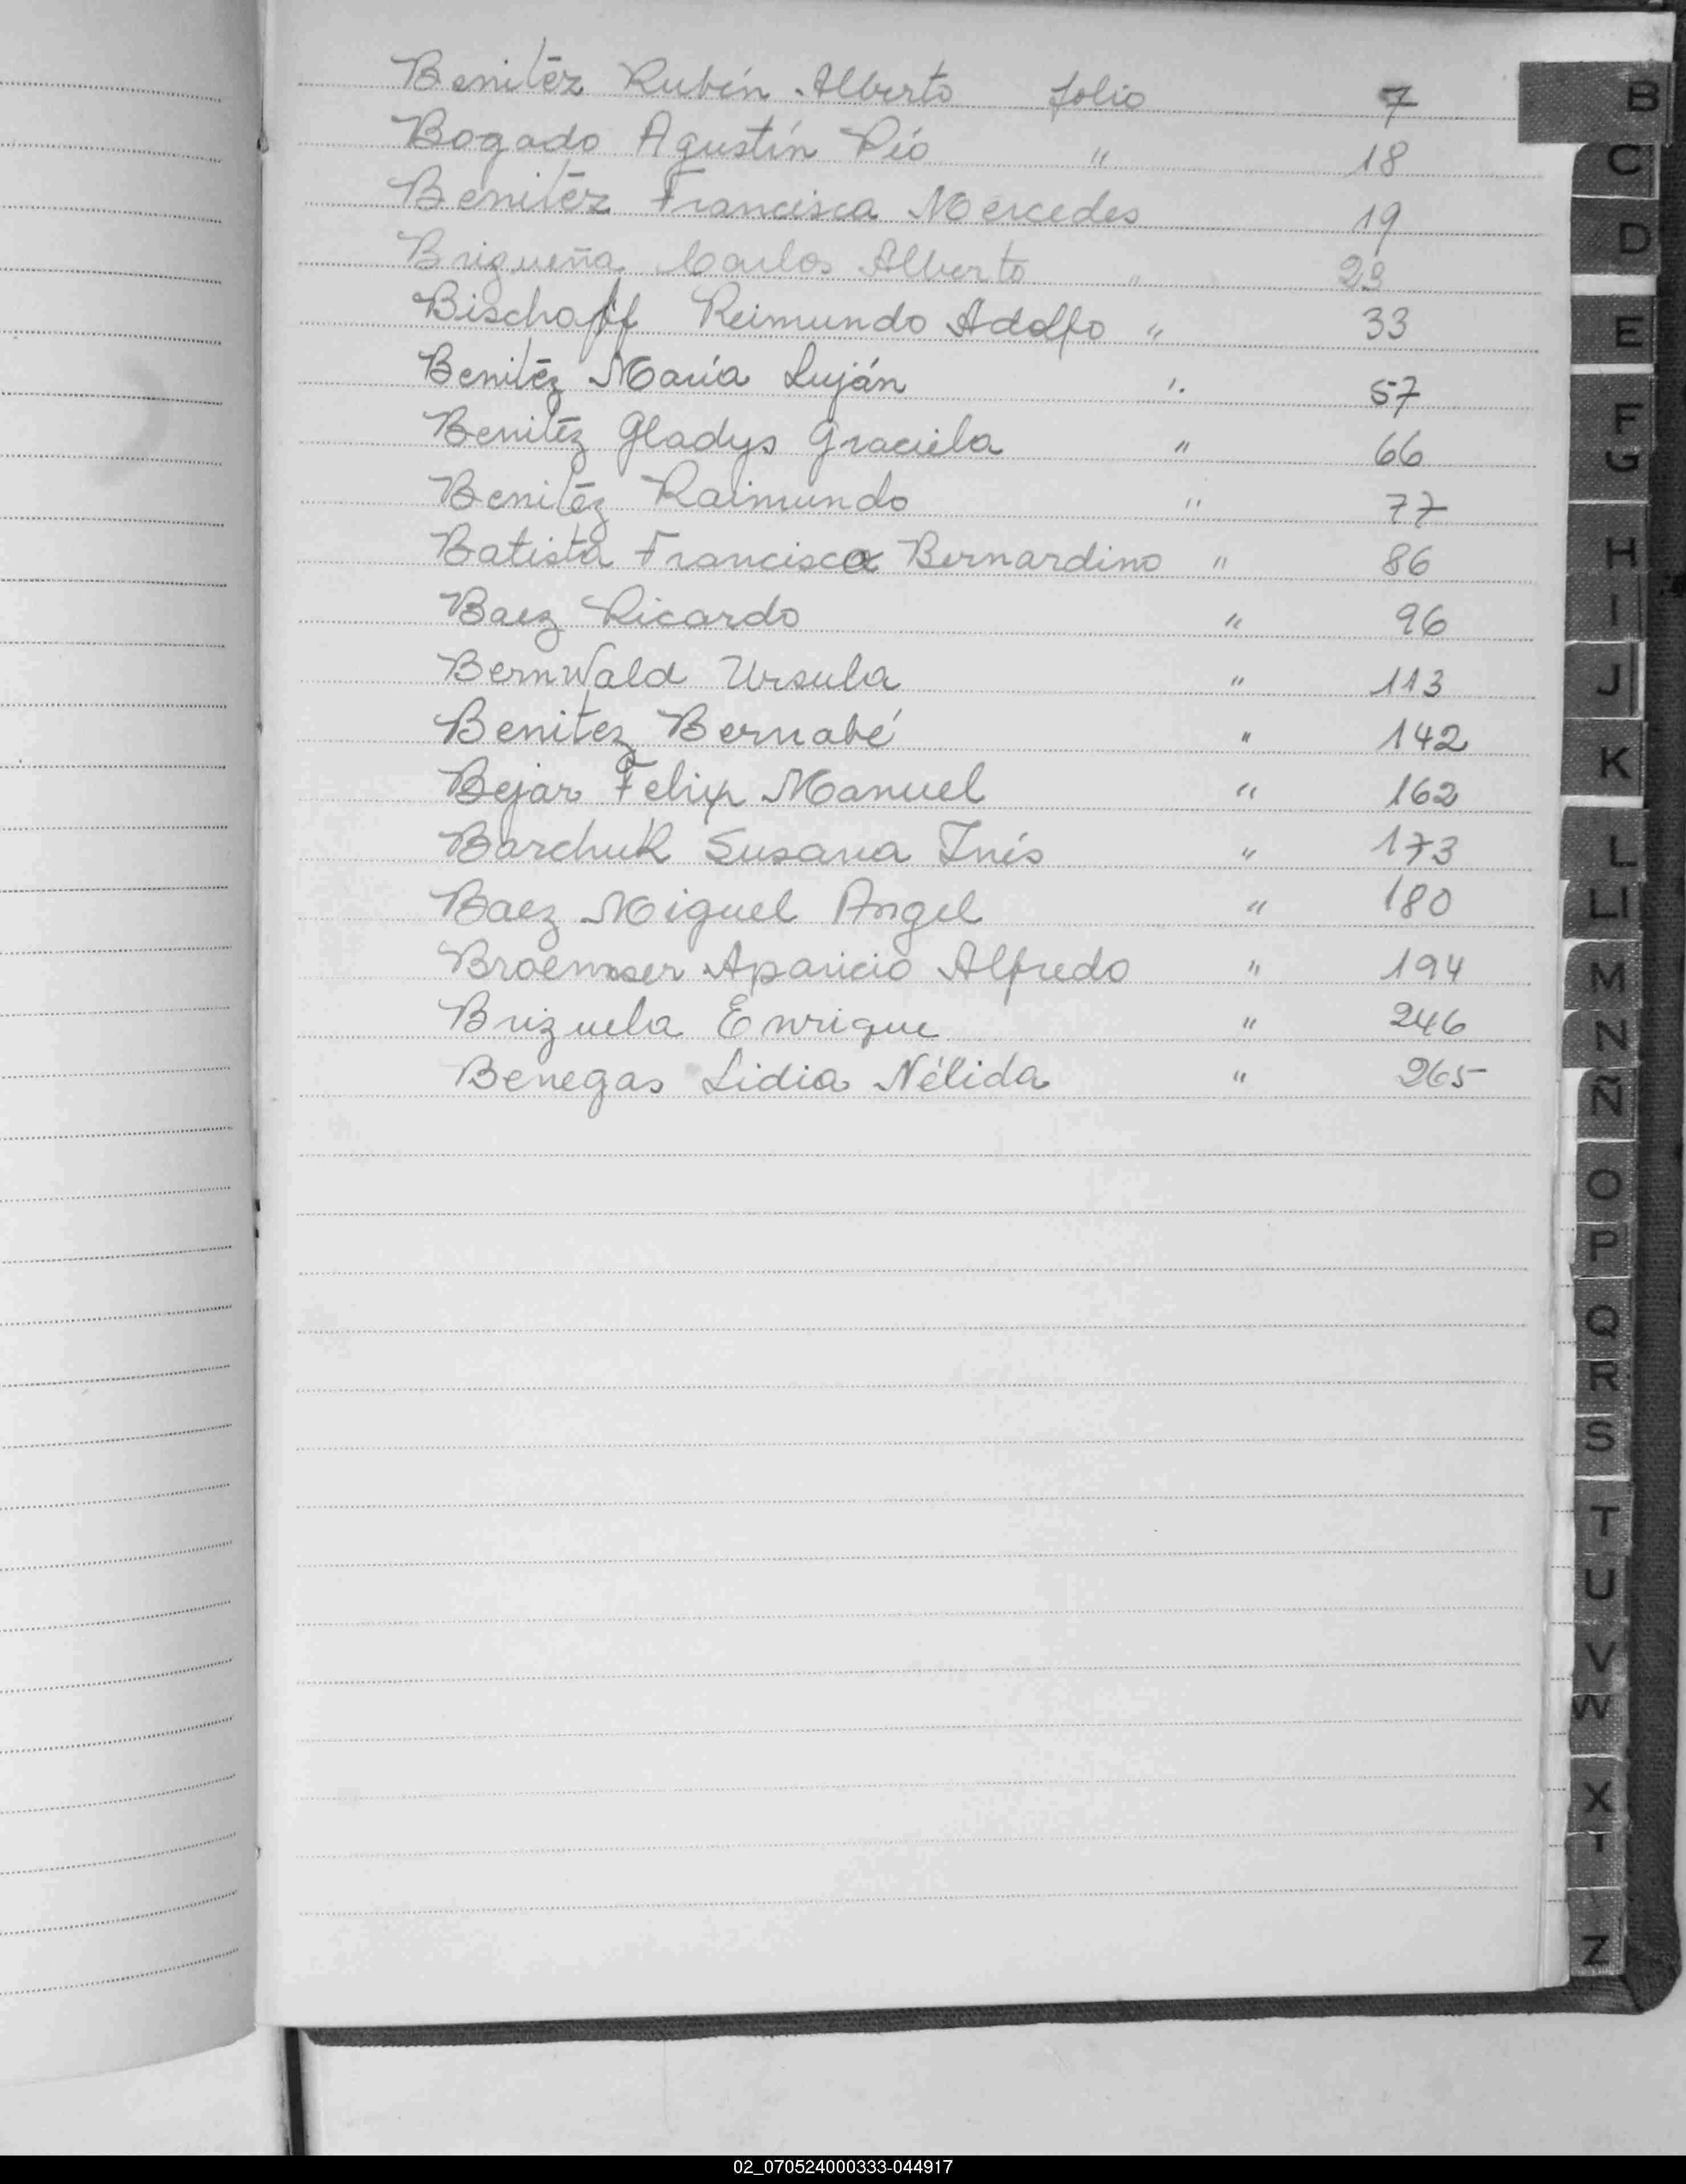 Benitez Rubén Alberto folio 7
Bogado Agustín Pío " 18
Benitez Francisca Mercedes 19
Brigueña Carlos Alberto " 23
Bischoff Reimundo Adolfo " 33
Benitez María Luján " 57
Benitez Gladys Graciela " 66
Benitez Raimundo " 77
Batista Francisca Bernardino " 86
Baez Ricardo " 96
BernWald Ursula " 113
Benitez Bernabé " 142
Bejar Felix Manuel " 162
Barchuk Susana Inés " 173
Baez Miguel Angel " 180
Broemser Aparicio Alfredo " 194
Brizuela Enrique " 246
Benegas Lidia Nélida " 265
B
C
D
E
F
G
H
I
J
K
L
Ll
M
N
Ñ
O
P
Q
R
S
T
U
V
W
X
Z
02_070524000333-044917